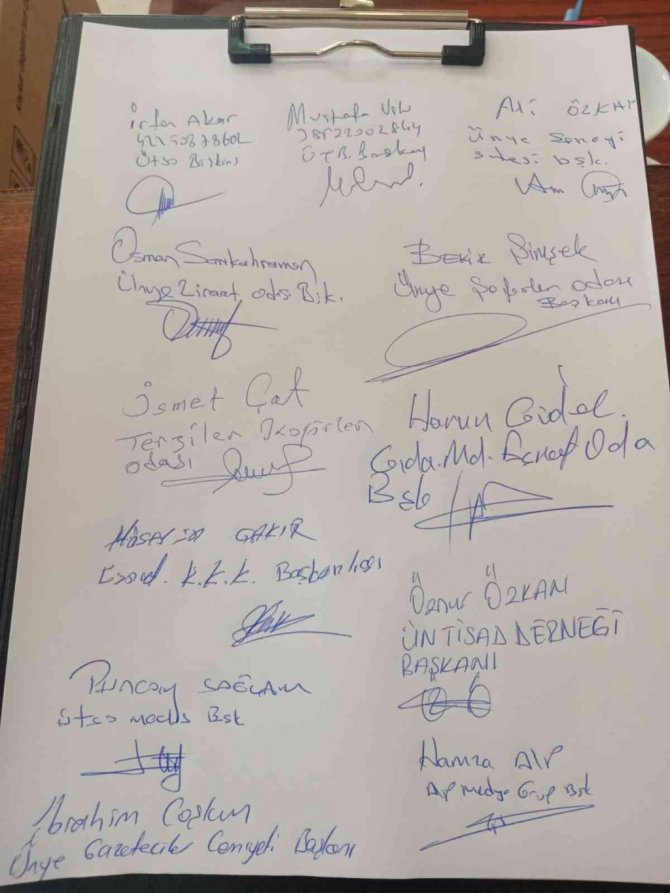 İrfan Akar
ÜTSO Başkanı
Mustafa
ÜTB. Başkanı
Ali ÖZKAN
Ünye Sanayi
sitesi bşk.
Osman Sarıkahraman
Ünye Ziraat odası Bşk.
BEKİR Şimşek
Ünye Şoförler odası
Başkanı
İsmet Çat
Terziler
odası
Harun Gidel.
Gıda. Md. Esnaf Oda
Bşk
Hüseyin ÇAKIR
Esnaf. K.K.K. Başkanlığı
Öznur ÖZKAN
ÜNTİSAD DERNEĞİ
BAŞKANI
SAĞLAM
ütso meclis Bşk
Hamza Alp
Alp medya Grup Bşk
İbrahim Coşkun
Ünye Gazeteciler Cemiyeti Başkanı